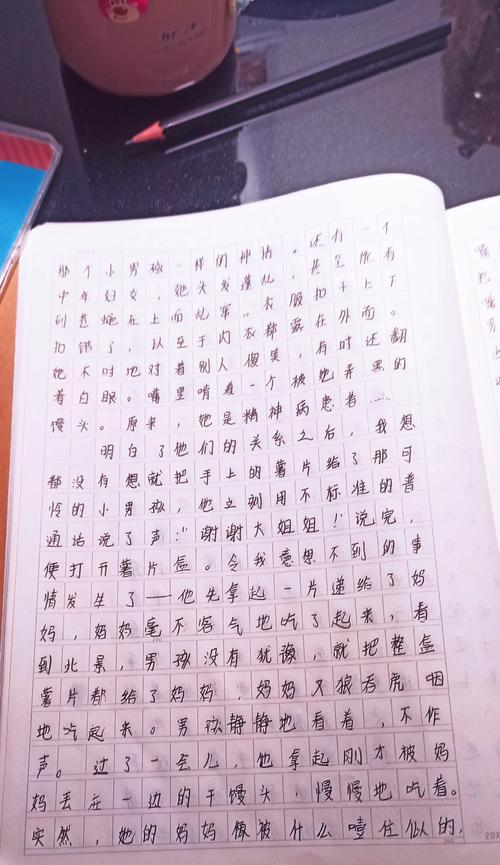 那个小男孩一样的神情。还有一个
中年妇女，她头发蓬乱，甚至所有
到苍蝇在上面乱窜。衣服扣子上下
扣错了，以至于内衣都露在外面。
她不时地对着别人傻笑，有时还翻
着白眼。嘴里啃着一个被她弄黑的
馒头。原来，她是精神病患者……
明白了他们的关系之后，我想
都没有想就把手上的薯片给了那可
怜的小男孩，他立刻用不标准的普
通话说了声：“谢谢大姐姐！”说完，
便打开薯片盒。令我意想不到的事
情发生了——他先拿起一片递给了妈
妈，妈妈毫不客气地吃了起来，看
到此景，男孩没有犹豫，就把整盒
薯片都给了妈妈，妈妈又狼吞虎咽
地吃起来。男孩静静地看着，不作
声。过了一会儿，他拿起刚才被妈
妈丢在一边的干馒头，慢慢地吃着。
突然，她的妈妈像被什么噎住似的，